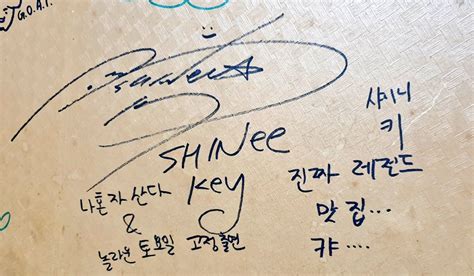 G.O.A.T.
SHINee
Key
나혼자산다
&
놀라운 토요일 고정출연
샤이니
키
진짜 레전드
맛집...
캬....